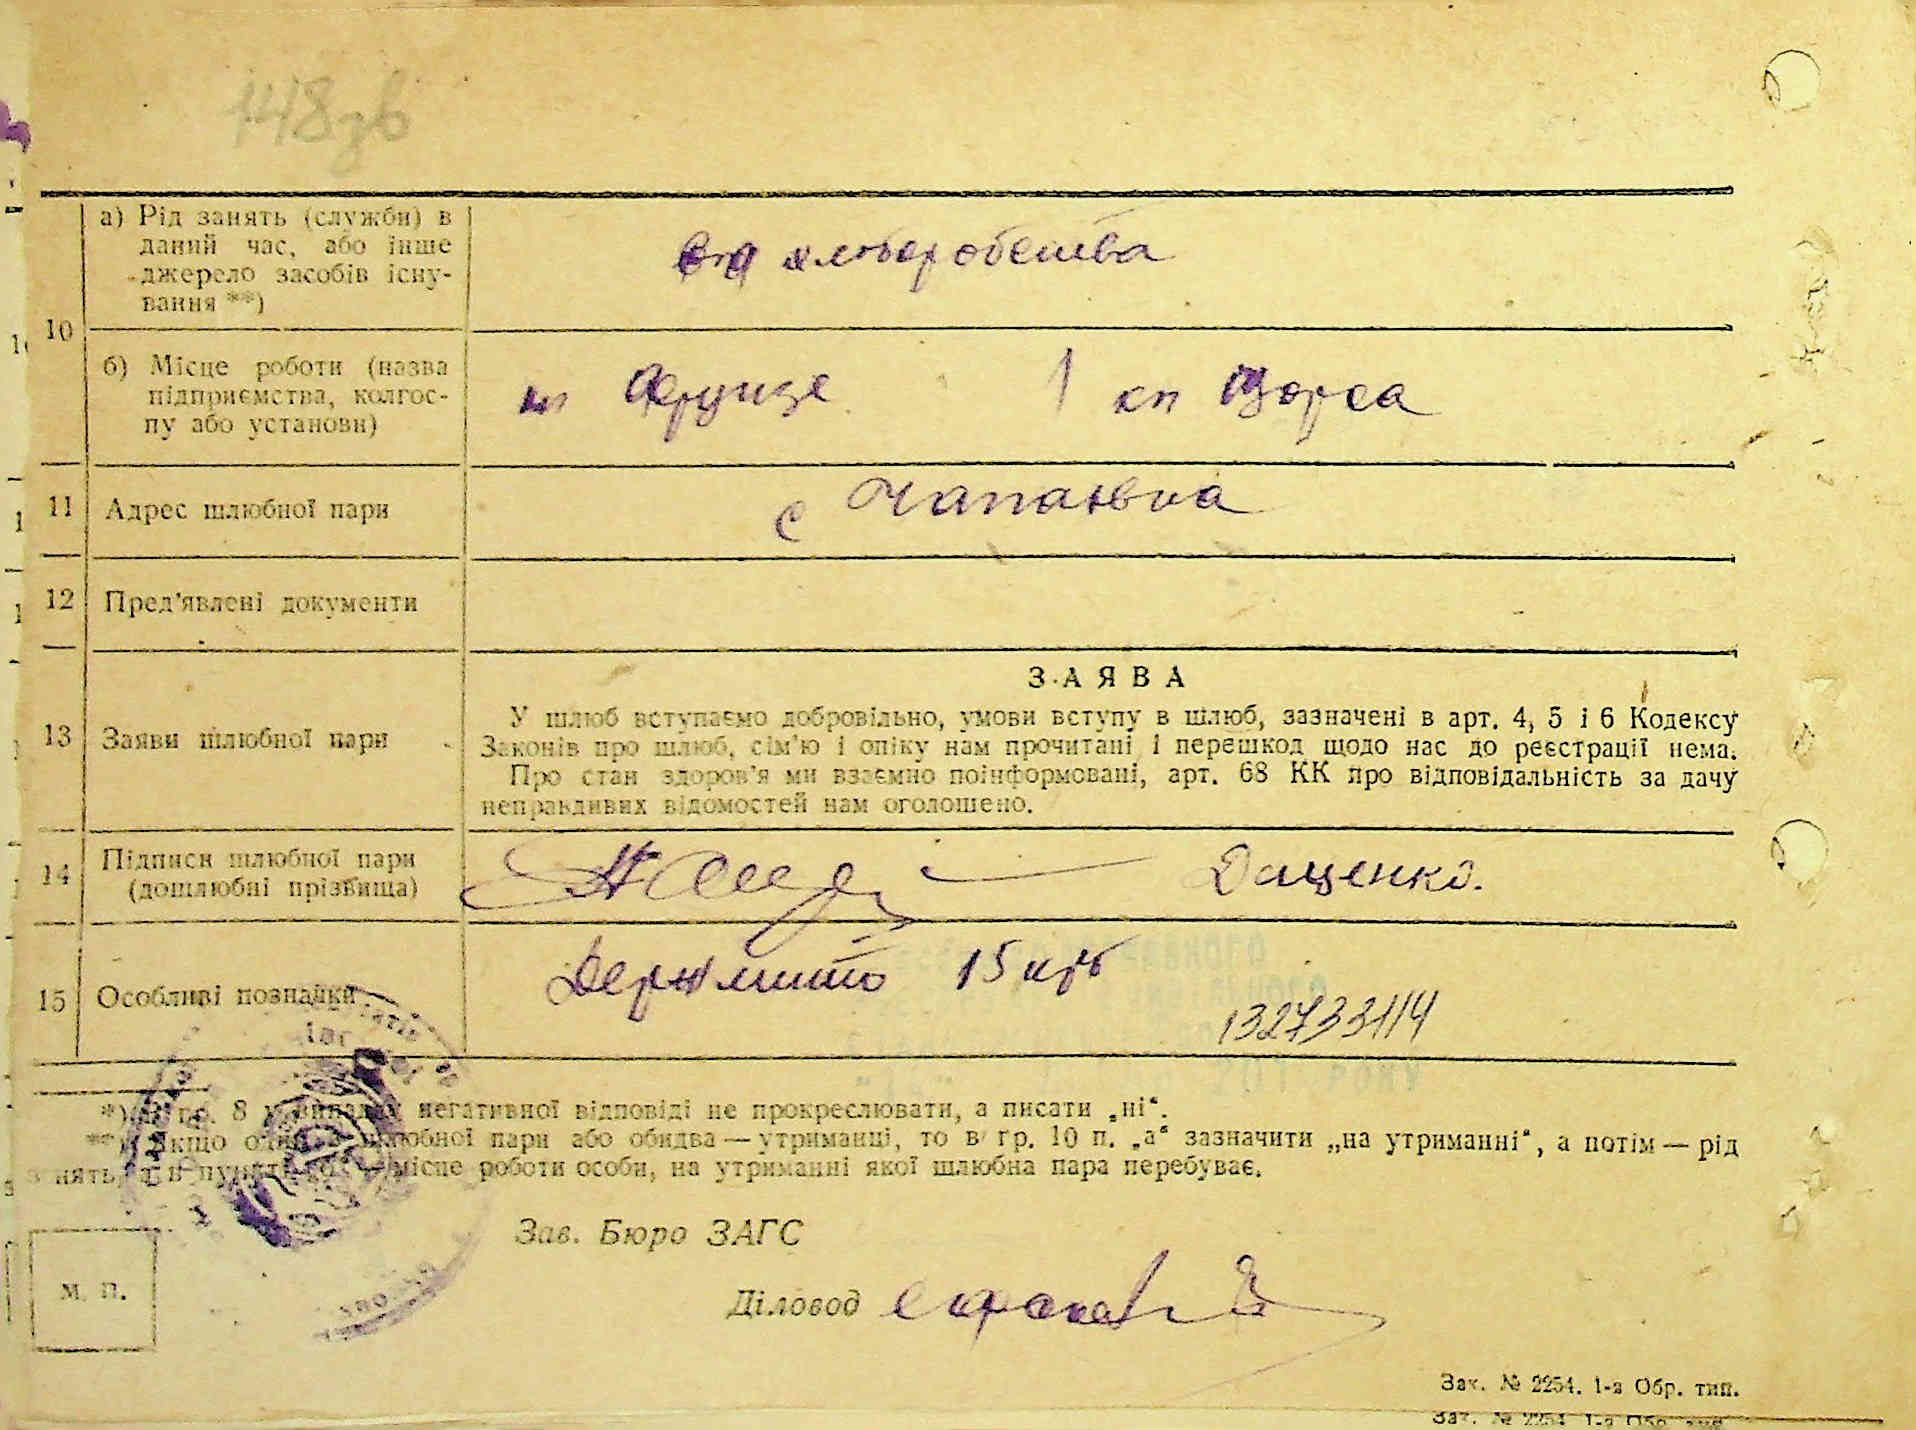 148 зв
10
а) Рід занять (служби) в
даний час, або інше
джерело засобів існу-
вання **)
від хліборобства
б) Місце роботи (назва
підприємства, колгос-
пу або установи)
кп Фрунзе кп Щорса
11 Адрес шлюбної пари
с Чапаювка
12 Пред'явлені документи
13 Заяви шлюбної пари
ЗАЯВА
У шлюб вступаємо добровільно, умови вступу в шлюб, зазначені в арт. 4, 5 і 6 Кодексу
Законів про шлюб, сім'ю і опіку нам прочитані і перешкод щодо нас до реєстрації нема.
Про стан здоров'я ми взаємно поінформовані, арт. 68 КК про відповідальність за дачу
неправдивих відомостей нам оголошено.
14 Підписи шлюбної пари
(дошлюбні прізвища)
Даценко.
15 Особливі позначки
Держмито 15 крб
132733114
*) В гр. 8 у випадку негативної відповіді не прокреслювати, а писати „ні“.
**) Якщо один з шлюбної пари або обидва — утриманці, то в гр. 10 п. „а“ зазначити „на утриманні“, а потім — рід
занять, а в пункті „б“ — місце роботи особи, на утриманні якої шлюбна пара перебуває.
Зав. Бюро ЗАГС
м. п.
Діловод
Зак. № 2254. 1-а Обр. тип.
Зак. № 2254. 1-а Обр. тип.